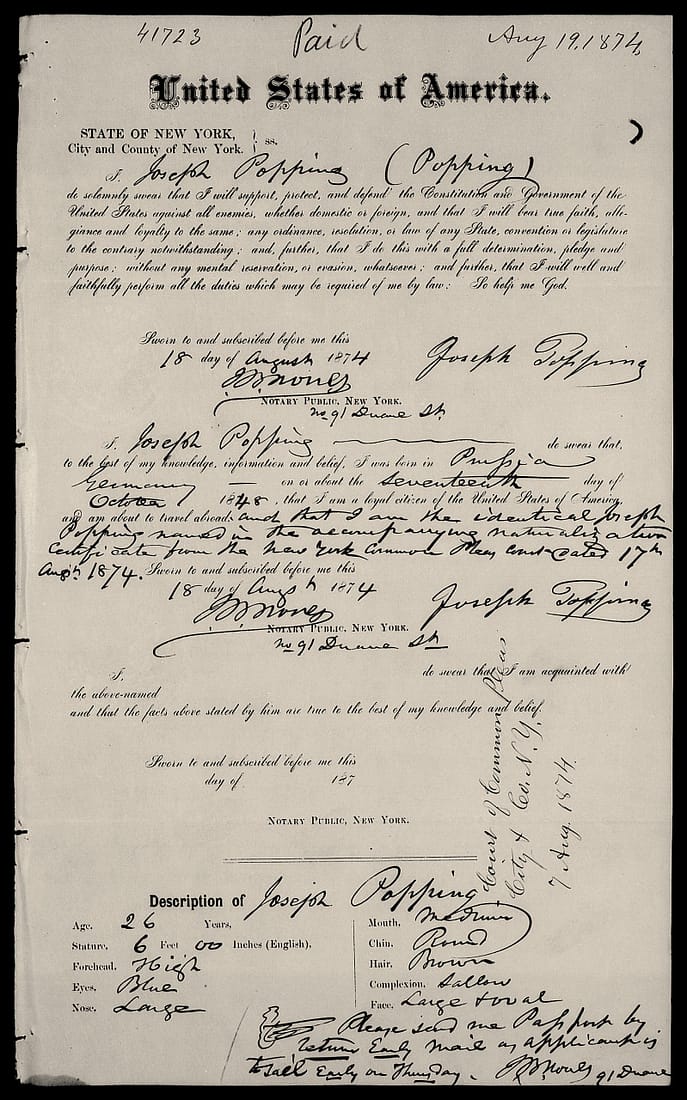 41723 Paid Aug 19, 1874
United States of America.
STATE OF NEW YORK,
City and County of New York. } ss.
I, Joseph Popping (Popping)
do solemnly swear that I will support, protect, and defend the Constitution and Government of the
United States against all enemies, whether domestic or foreign, and that I will bear true faith, alle-
giance and loyalty to the same; any ordinance, resolution, or law of any State, convention or legislature
to the contrary notwithstanding; and, further, that I do this with a full determination, pledge and
purpose; without any mental reservation, or evasion, whatsoever; and further, that I will well and
faithfully perform all the duties which may be required of me by law: So help me God.
Sworn to and subscribed before me this
18 day of August 1874 Joseph Popping
NOTARY PUBLIC, NEW YORK.
No 91 Duane St.
I, Joseph Popping do swear that,
to the best of my knowledge, information and belief, I was born in Prussia
Germany — on or about the seventeenth day of
October 1848, that I am a loyal citizen of the United States of America,
and am about to travel abroad: and that I am the identical Joseph
Popping named in the accompanying naturalization
certificate from the New York Common Pleas Court dated 17th
Augst 1874. Sworn to and subscribed before me this
18 day of Augst 1874 Joseph Popping
NOTARY PUBLIC, NEW YORK.
No 91 Duane St
I, do swear that I am acquainted with
the above-named
and that the facts above stated by him are true to the best of my knowledge and belief.
Sworn to and subscribed before me this
day of 187
NOTARY PUBLIC, NEW YORK.
Court of Common Pleas
City & Co. N. Y.
7 Aug. 1874.
Description of Joseph Popping
Age, 26 Years, Mouth, Medium
Stature, 6 Feet 00 Inches (English), Chin, Round
Forehead, High Hair, Brown
Eyes, Blue Complexion, Sallow
Nose, Large Face, Large & oval
Please send me Passport by
return Early mail as applicant is
to sail Early on Thursday. 91 Duane